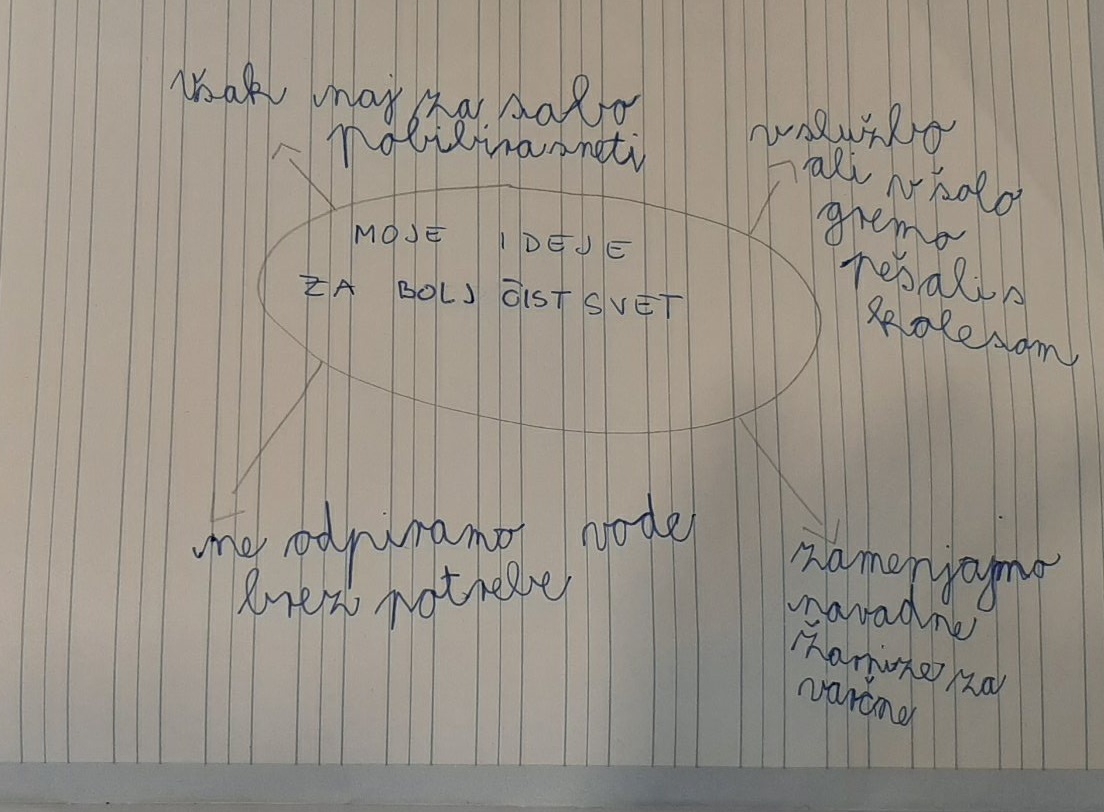 vsak naj za sabo
pobibira smeti
v službo
ali v šolo
gremo
peš ali s
kolesom
MOJE IDEJE
ZA BOLJ ČIST SVET
ne odpiramo vode
brez potrebe
zamenjajmo
navadne
žarnize za
varčne